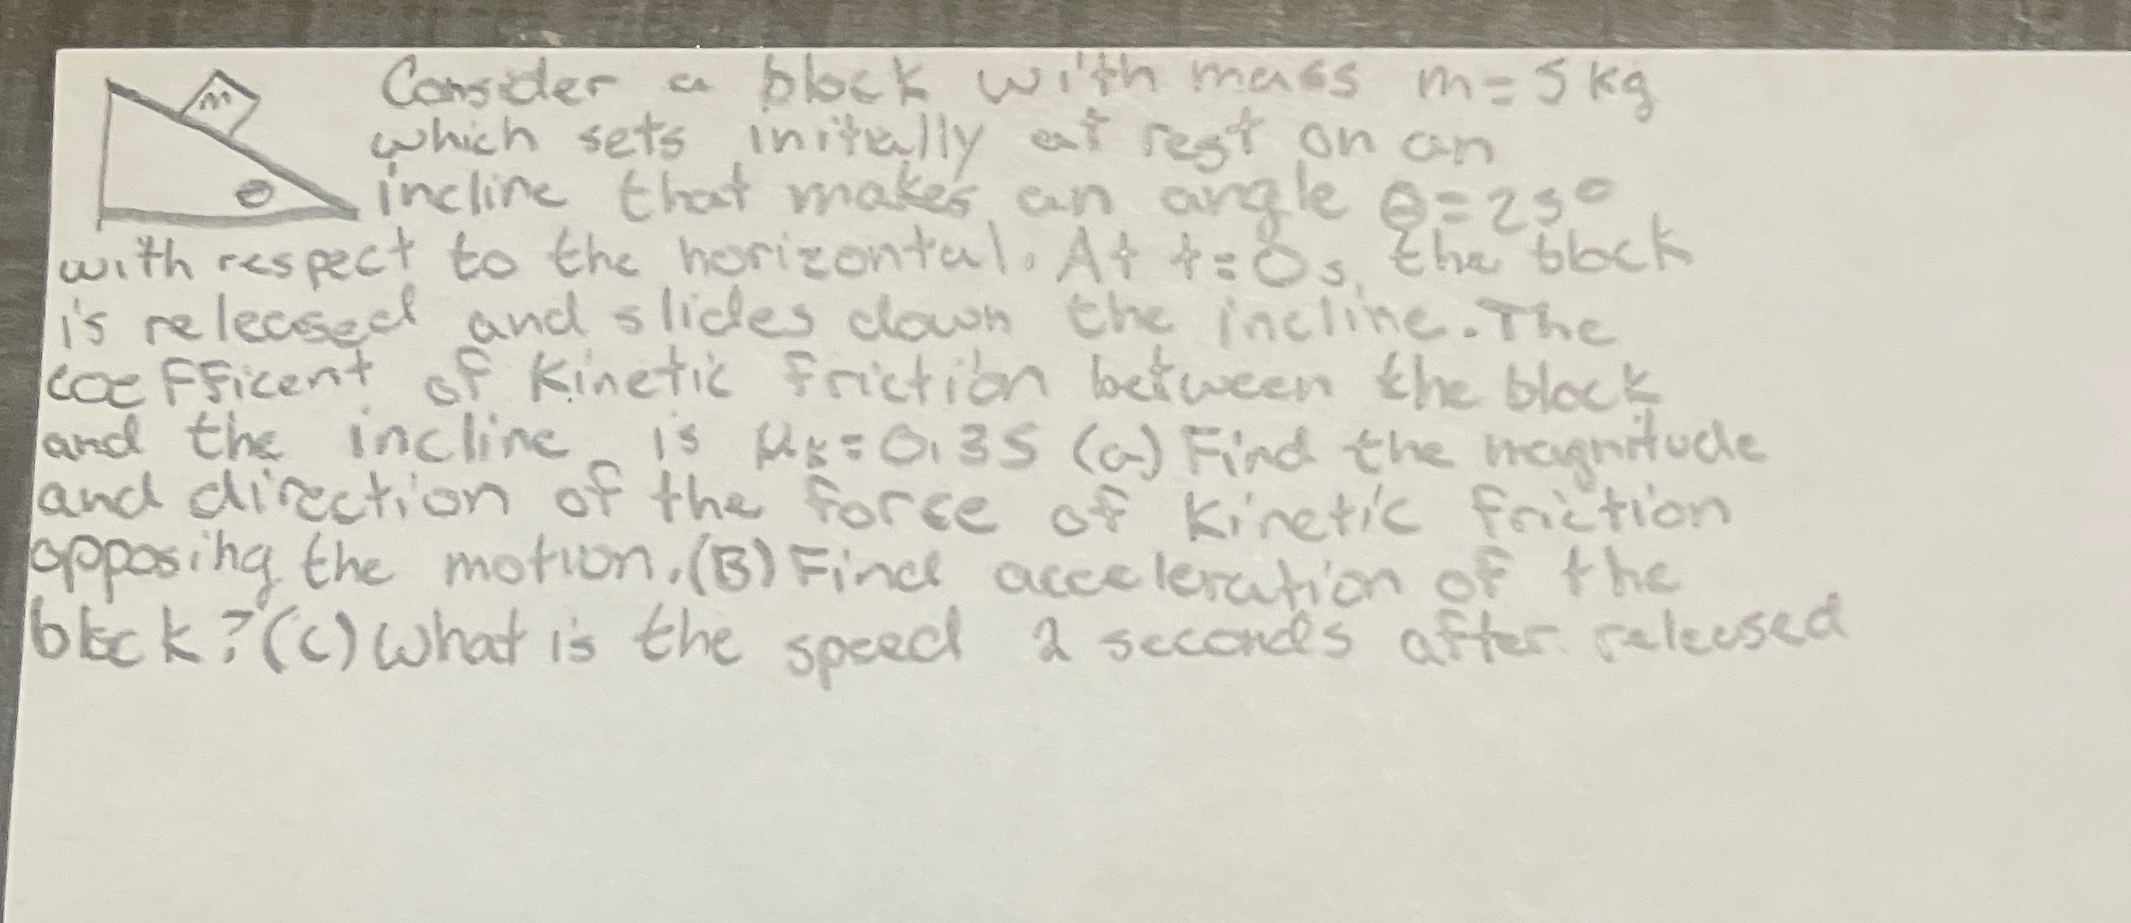 m
θ
Consider a block with mass m = 5 kg
which sets initally at rest on an
incline that makes an angle θ = 25°
with respect to the horizontal. At t = 0s, the block
is released and slides down the incline. The
coefficent of kinetic friction between the block
and the incline is μk = 0.35 (a) Find the magnitude
and direction of the force of kinetic friction
opposing the motion. (B) Find acceleration of the
block? (c) What is the speed 2 seconds after released